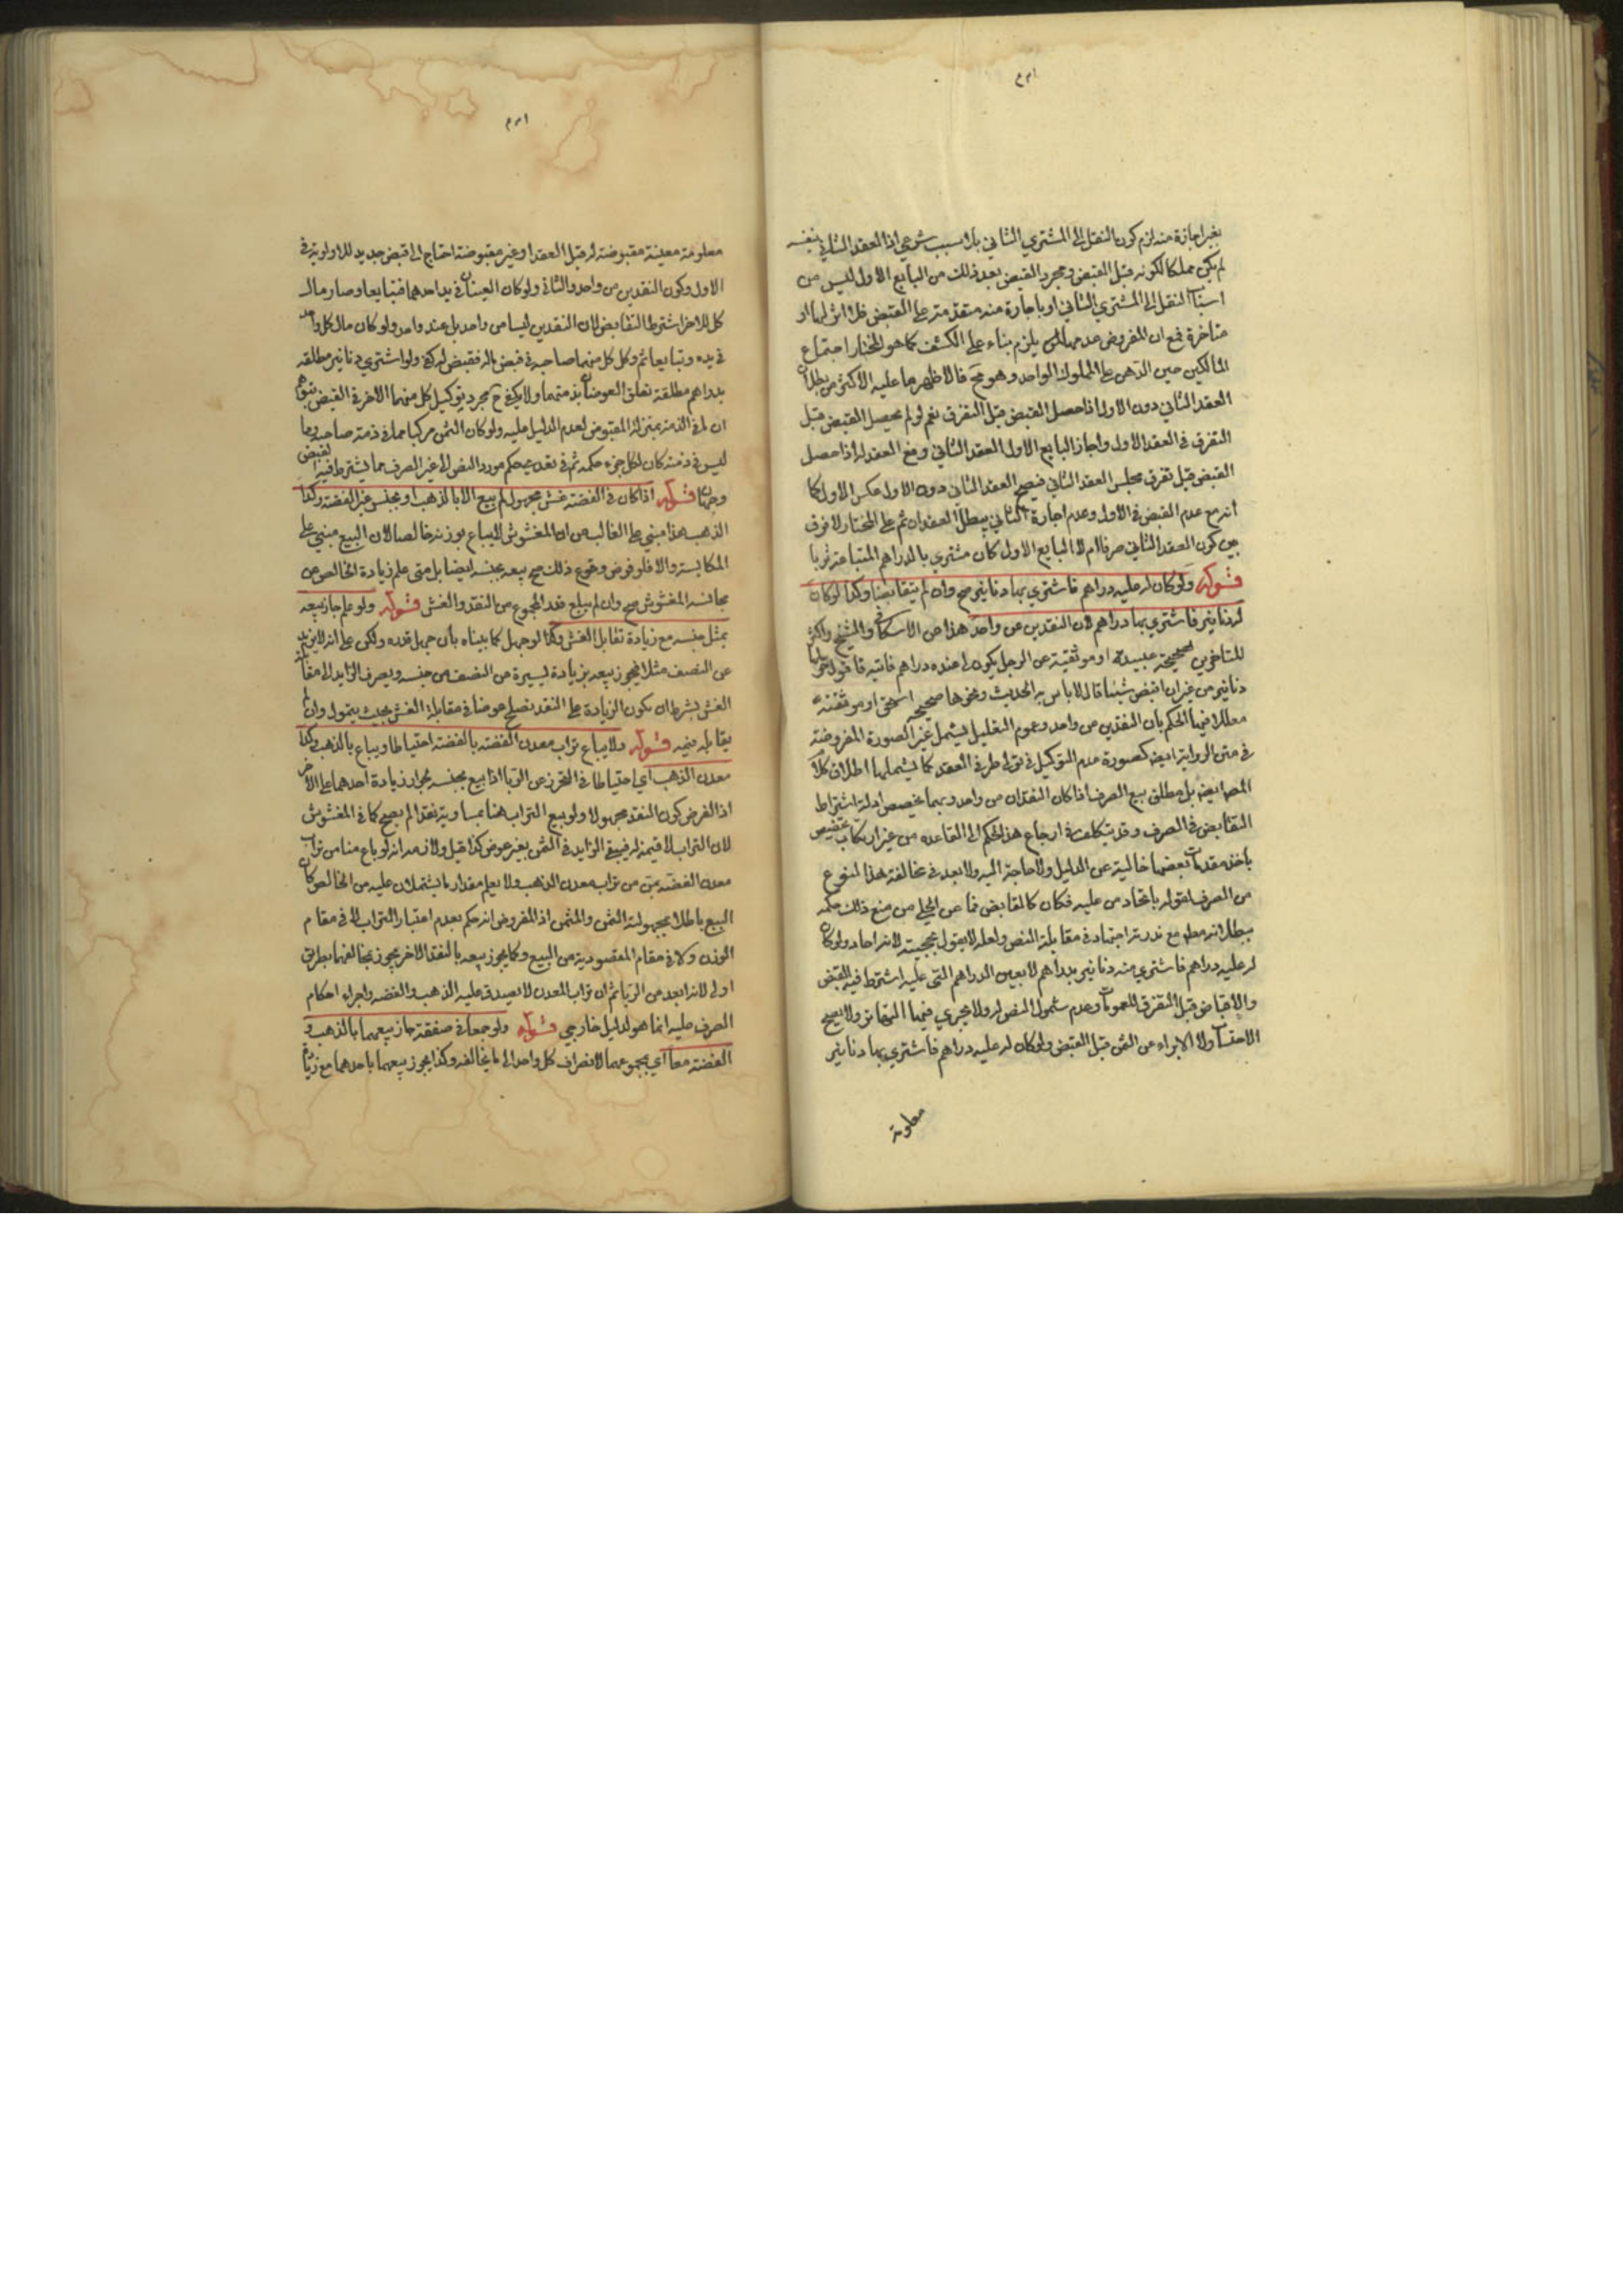 بغير اجازة منه لزم كون النقل الى المشتري الثاني بلا سبب شرعي اذا العقد الثاني بنفسه
لم يكن مملكا لكونه قبل القبض ومجرد القبض بعد ذلك من البايع الاول ليس من
اسباب النقل الى المشتري الثاني او باجازة منه متقدمة على القبض فلا اثر لها او
متاخرة فمع ان المفروض عدمها يلزم بناء على الكشف كما هو المختار اجتماع
المالكين حين الذهن على المملوك الواحد وهو مح فالاظهر ما عليه الاكثر من بطلان
العقد الثاني دون الاول اذا حصل القبض قبل التفرق نعم لو لم يحصل القبض قبل
التفرق في العقد الاول واجاز البايع الاول العقد الثاني وقع العقد له اذا حصل
القبض قبل تفرق مجلس العقد الثاني فيصح العقد الثاني دون الاول عكس الاول كما
انه مع عدم القبض في الاول وعدم اجازة الثاني يبطل العقدان ثم على المختار لا فرق
بين كون العقد الثاني صرفا ام لا البايع الاول كان مشتري بالدراهم المتباعة ثوبا
قوله ولو كان له عليه دراهم فاشتري بها دنانير صح وان لم يتقابضا وكذا لو كان
له دنانير فاشتري بها دراهم لان النقدين من واحد هذا من الاسكافي والشيخ واكثر
المتاخرين صحيحة عبيد او موثقته عن الرجل يكون لي عنده دراهم فاتيه فاقول حولها
دنانير من غير ان اقبض شيئا قال لا باس به الحديث ونحوها صحيح اسحق او موثقته
معللا فيها الحكم بان النقدين من واحد وعموم التعليل يشمل غير الصورة المفروضة
في متن الرواية ايضا كصورة عدم التوكيل في تولى طرفي العقد كما يشملها اطلاق كلام
المص ايضا بل مطلق بيع الصرف اذا كان النقدان من واحد وبهما يخصص ادلة اشتراط
التقابض في الصرف وقد يتكلف في ارجاع هذا الحكم الى القاعده من غير ارتكاب تخصيص
باخذ مقدمات بعضها خالية عن الدليل ولا حاجة اليه ولا بعد في مخالفة هذا النوع
من الصرف لقوله باتحاد من عليه فكان كالمقابض فما عن الحلي من منع ذلك حكمه
ببطلانه مطلقا مع ندرته اجتهاد في مقابلة النص ولعله لا يقول بحجيته لانه احاد ولو كان
له عليه دراهم فاشتري منه دنانير بدراهم لا بعين الدراهم التي عليه اشترط فيه القبض
والاقباض قبل التفرق للعمومات وعدم شمول النص له ولا يجري فيها التهاتر ولا يصح
الاحتساب ولا الابراء عن الثمن قبل القبض ولو كان له عليه دراهم فاشتري بها دنانير
معلومة
معلومة معينة مقبوضة له قبل العقد او غير مقبوضة احتاج الى قبض جديد للاولوية في
الاول وكون النقدين من واحد والثاني ولو كان العينان في يد احدهما فتبايعا وصار مال
كل للاخر اشترط التقابض لان النقدين ليسا من واحد بل عند واحد ولو كان مال كل واحد
في يده وتبايعا ثم وكل كل منهما صاحبه في قبض ماله فقبض له كفى ولو اشتري دنانير مطلقه
بدراهم مطلقة تعلق العوضان بذمتهما ولا يكفي ح مجرد توكيل كل منهما الاخر في القبض بتوهم
ان ما في الذمة بمنزلة المقبوض لعدم الدليل عليه ولو كان الثمن مركبا مما في ذمة صاحبه ومما
ليس في ذمته كان لكل جزء حكمه ثم في تعدي حكم مورد النص الى غير الصرف مما يشترط فيه القبض
وجهان قوله اذا كان في الفضة غش مجهول لم يبع الا بالذهب او بجنس غير الفضة وكذا
الذهب هذا مبني على الغالب من ان المغشوش لا يباع بوزنه خالصا لان البيع مبني على
المكايسة والا فلو فرض وقوع ذلك صح بيعه بجنسه ايضا بل متى علم زيادة الخالص عن
مجانسه المغشوش صح وان لم يبلغ قدر المجموع من النقد والغش قوله ولو علم جاز بيعه
بمثل جنسه مع زيادة تقابل الغش وكذا لو جهل كما بيناه بان جهل قدره ولكن علم انه لا يزيد
عن النصف مثلا فيجوز بيعه بزيادة يسيرة من النصف من جنسه ويصرف الزايد الى مقابلة
الغش بشرط ان يكون الزيادة على النقد تصلح عوضا في مقابلة الغش بحيث يتمول وان لم
يقابله قيمة قوله ولا يباع تراب معدن الفضة بالفضة احتياطا ويباع بالذهب وكذا
معدن الذهب اي احتياطا في التحرز عن الربا اذا بيع بجنسه لجواز زيادة احدهما على الاخر
اذ الفرض كون النقد مجهولا ولو بيع التراب هنا بمساويه نقدا لم يصح كما في المغشوش
لان التراب لا قيمة له فيبقى الزايد في الثمن بغير عوض كذا قيل ولازمه انه لو باع منا من تراب
معدن الفضة بمن من تراب معدن الذهب ولا يعلم مقدار ما يشتملان عليه من الخالص كان
البيع باطلا بمجهولية الثمن والمثمن اذ المفروض انه حكم بعدم اعتبار التراب لا في مقام
الوزن ولا في مقام المقصودية من البيع وكما يجوز بيعه بالنقد الاخر يجوز بمخالفهما بطريق
اولى لانه ابعد من الربا ثم ان تراب المعدن لا يصدق عليه الذهب والفضه واجراء احكام
الصرف عليه انما هو لدليل خارجي قوله ولو جمعا في صفقة جاز بيعهما بالذهب و
الفضة معا اي بمجموعهما لانصراف كل واحد الى ما يخالفه وكذا يجوز بيعهما باحدهما مع زيادة